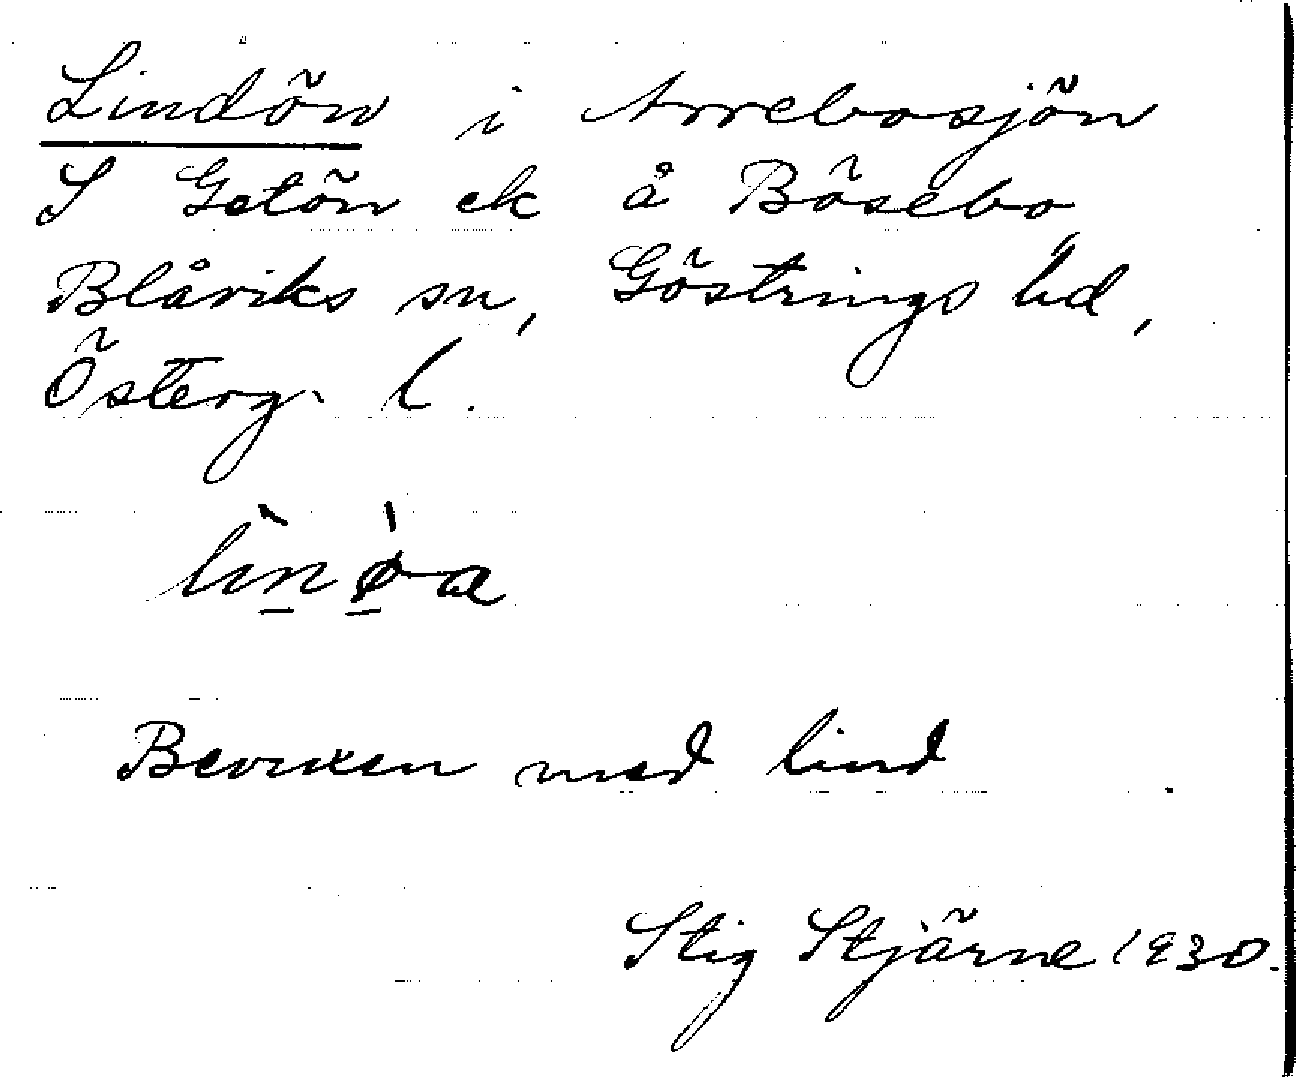 Lindön i Arrebosjön
S Getön ek å Bösebo
Blåviks sn, Göstrings hd,
Österg. l.
lìnǿa
Bevuxen med lind
Stig Stjärne 1930.